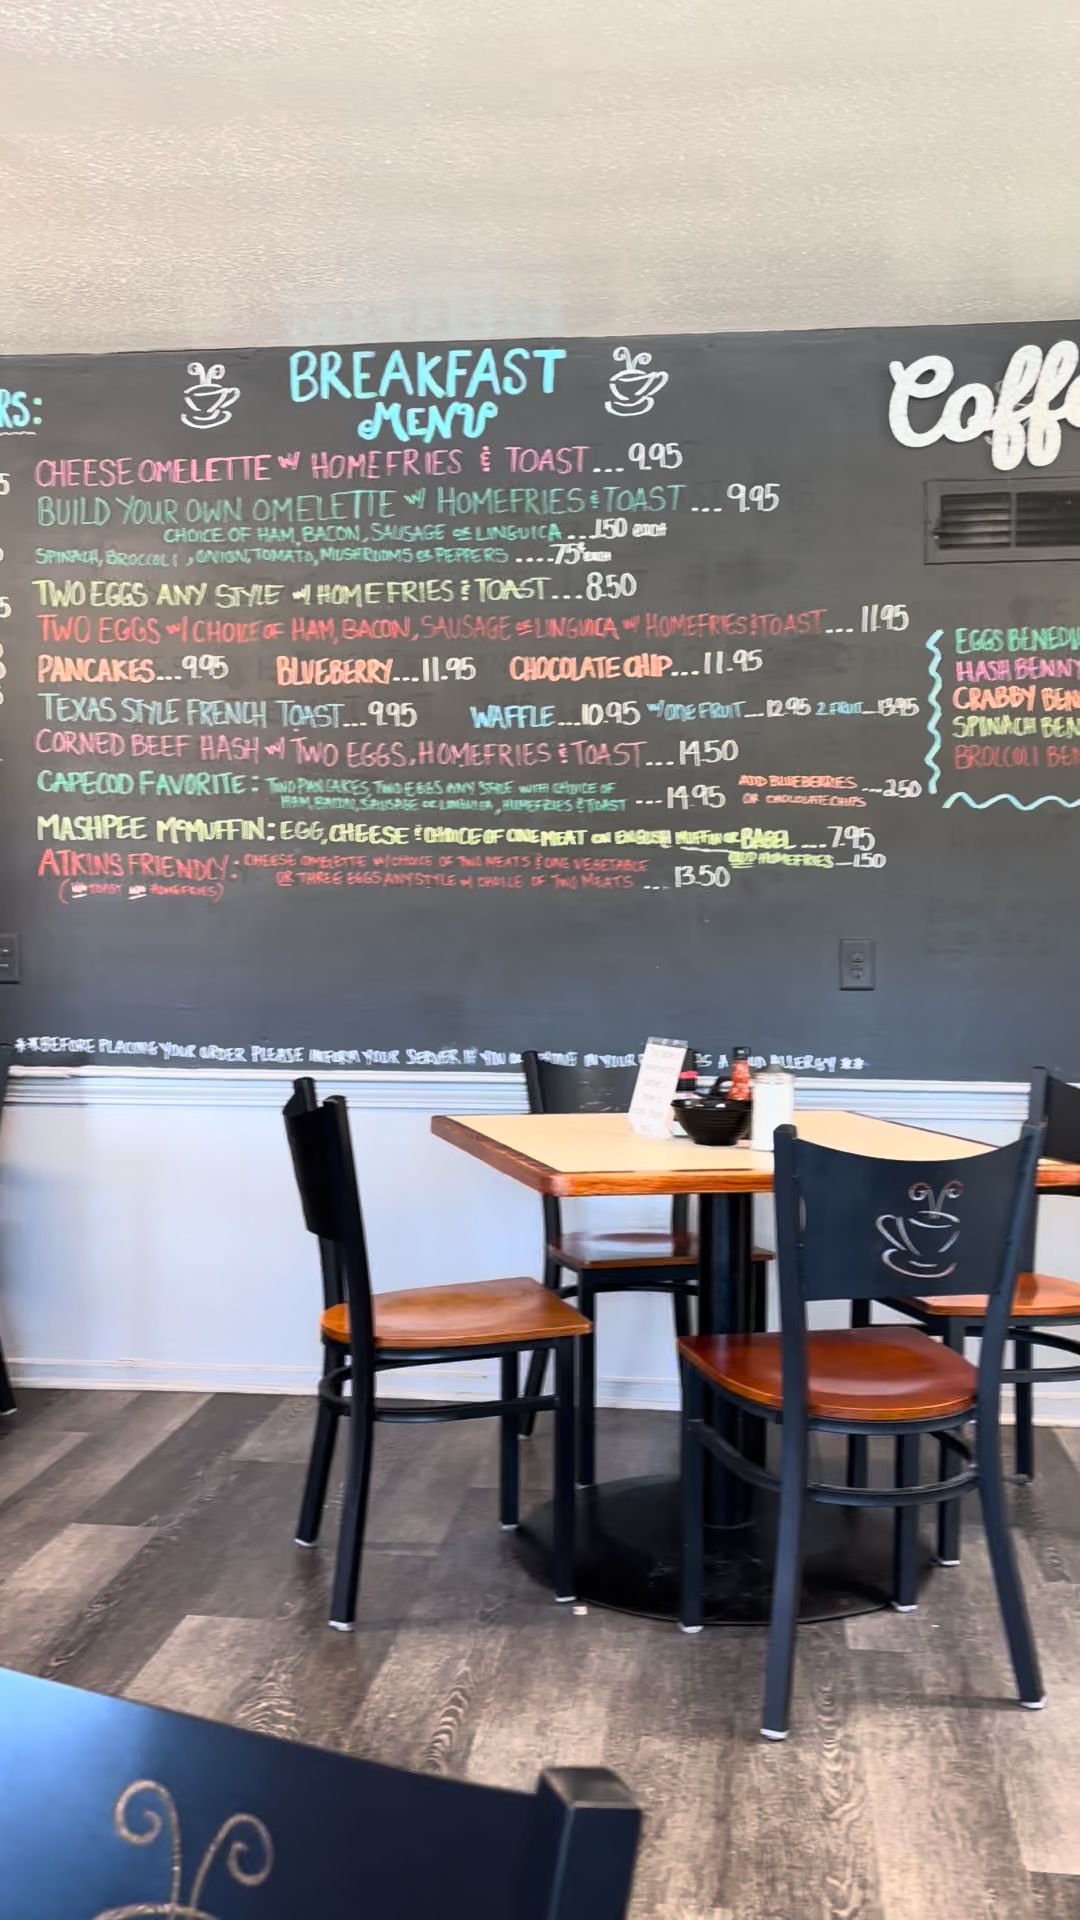 RS:
BREAKFAST
MENU
CHEESE OMELETTE W/ HOMEFRIES & TOAST...9.95
BUILD YOUR OWN OMELETTE W/ HOMEFRIES & TOAST...9.95
CHOICE OF HAM, BACON, SAUSAGE OR LINGUICA...1.50 EACH
SPINACH, BROCCOLI, ONION, TOMATO, MUSHROOMS OR PEPPERS....75¢ EACH
TWO EGGS ANY STYLE W/ HOMEFRIES & TOAST...8.50
TWO EGGS W/ CHOICE OF HAM, BACON, SAUSAGE OR LINGUICA W/ HOMEFRIES & TOAST...11.95
PANCAKES...9.95 BLUEBERRY...11.95 CHOCOLATE CHIP...11.95
TEXAS STYLE FRENCH TOAST...9.95 WAFFLE...10.95 W/ ONE FRUIT...12.95 2 FRUIT...13.95
CORNED BEEF HASH W/ TWO EGGS, HOMEFRIES & TOAST...14.50
CAPECOD FAVORITE: TWO PANCAKES, TWO EGGS ANY STYLE WITH CHOICE OF
HAM, BACON, SAUSAGE OR LINGUICA, HOMEFRIES & TOAST ...14.95
ADD BLUEBERRIES
OR CHOCOLATE CHIPS ...2.50
MASHPEE MCMUFFIN: EGG, CHEESE & CHOICE OF ONE MEAT ON ENGLISH MUFFIN OR BAGEL ...7.95
ADD HOMEFRIES...1.50
ATKINS FRIENDLY: CHEESE OMELETTE W/ CHOICE OF TWO MEATS & ONE VEGETABLE
OR THREE EGGS ANY STYLE W/ CHOICE OF TWO MEATS ...13.50
(NO TOAST NO HOMEFRIES)
Coff
EGGS BENEDI
HASH BENNY
CRABBY BEN
SPINACH BEN
BROCCOLI BEN
**BEFORE PLACING YOUR ORDER PLEASE INFORM YOUR SERVER IF YOU IN YOUR A ALLERGY**